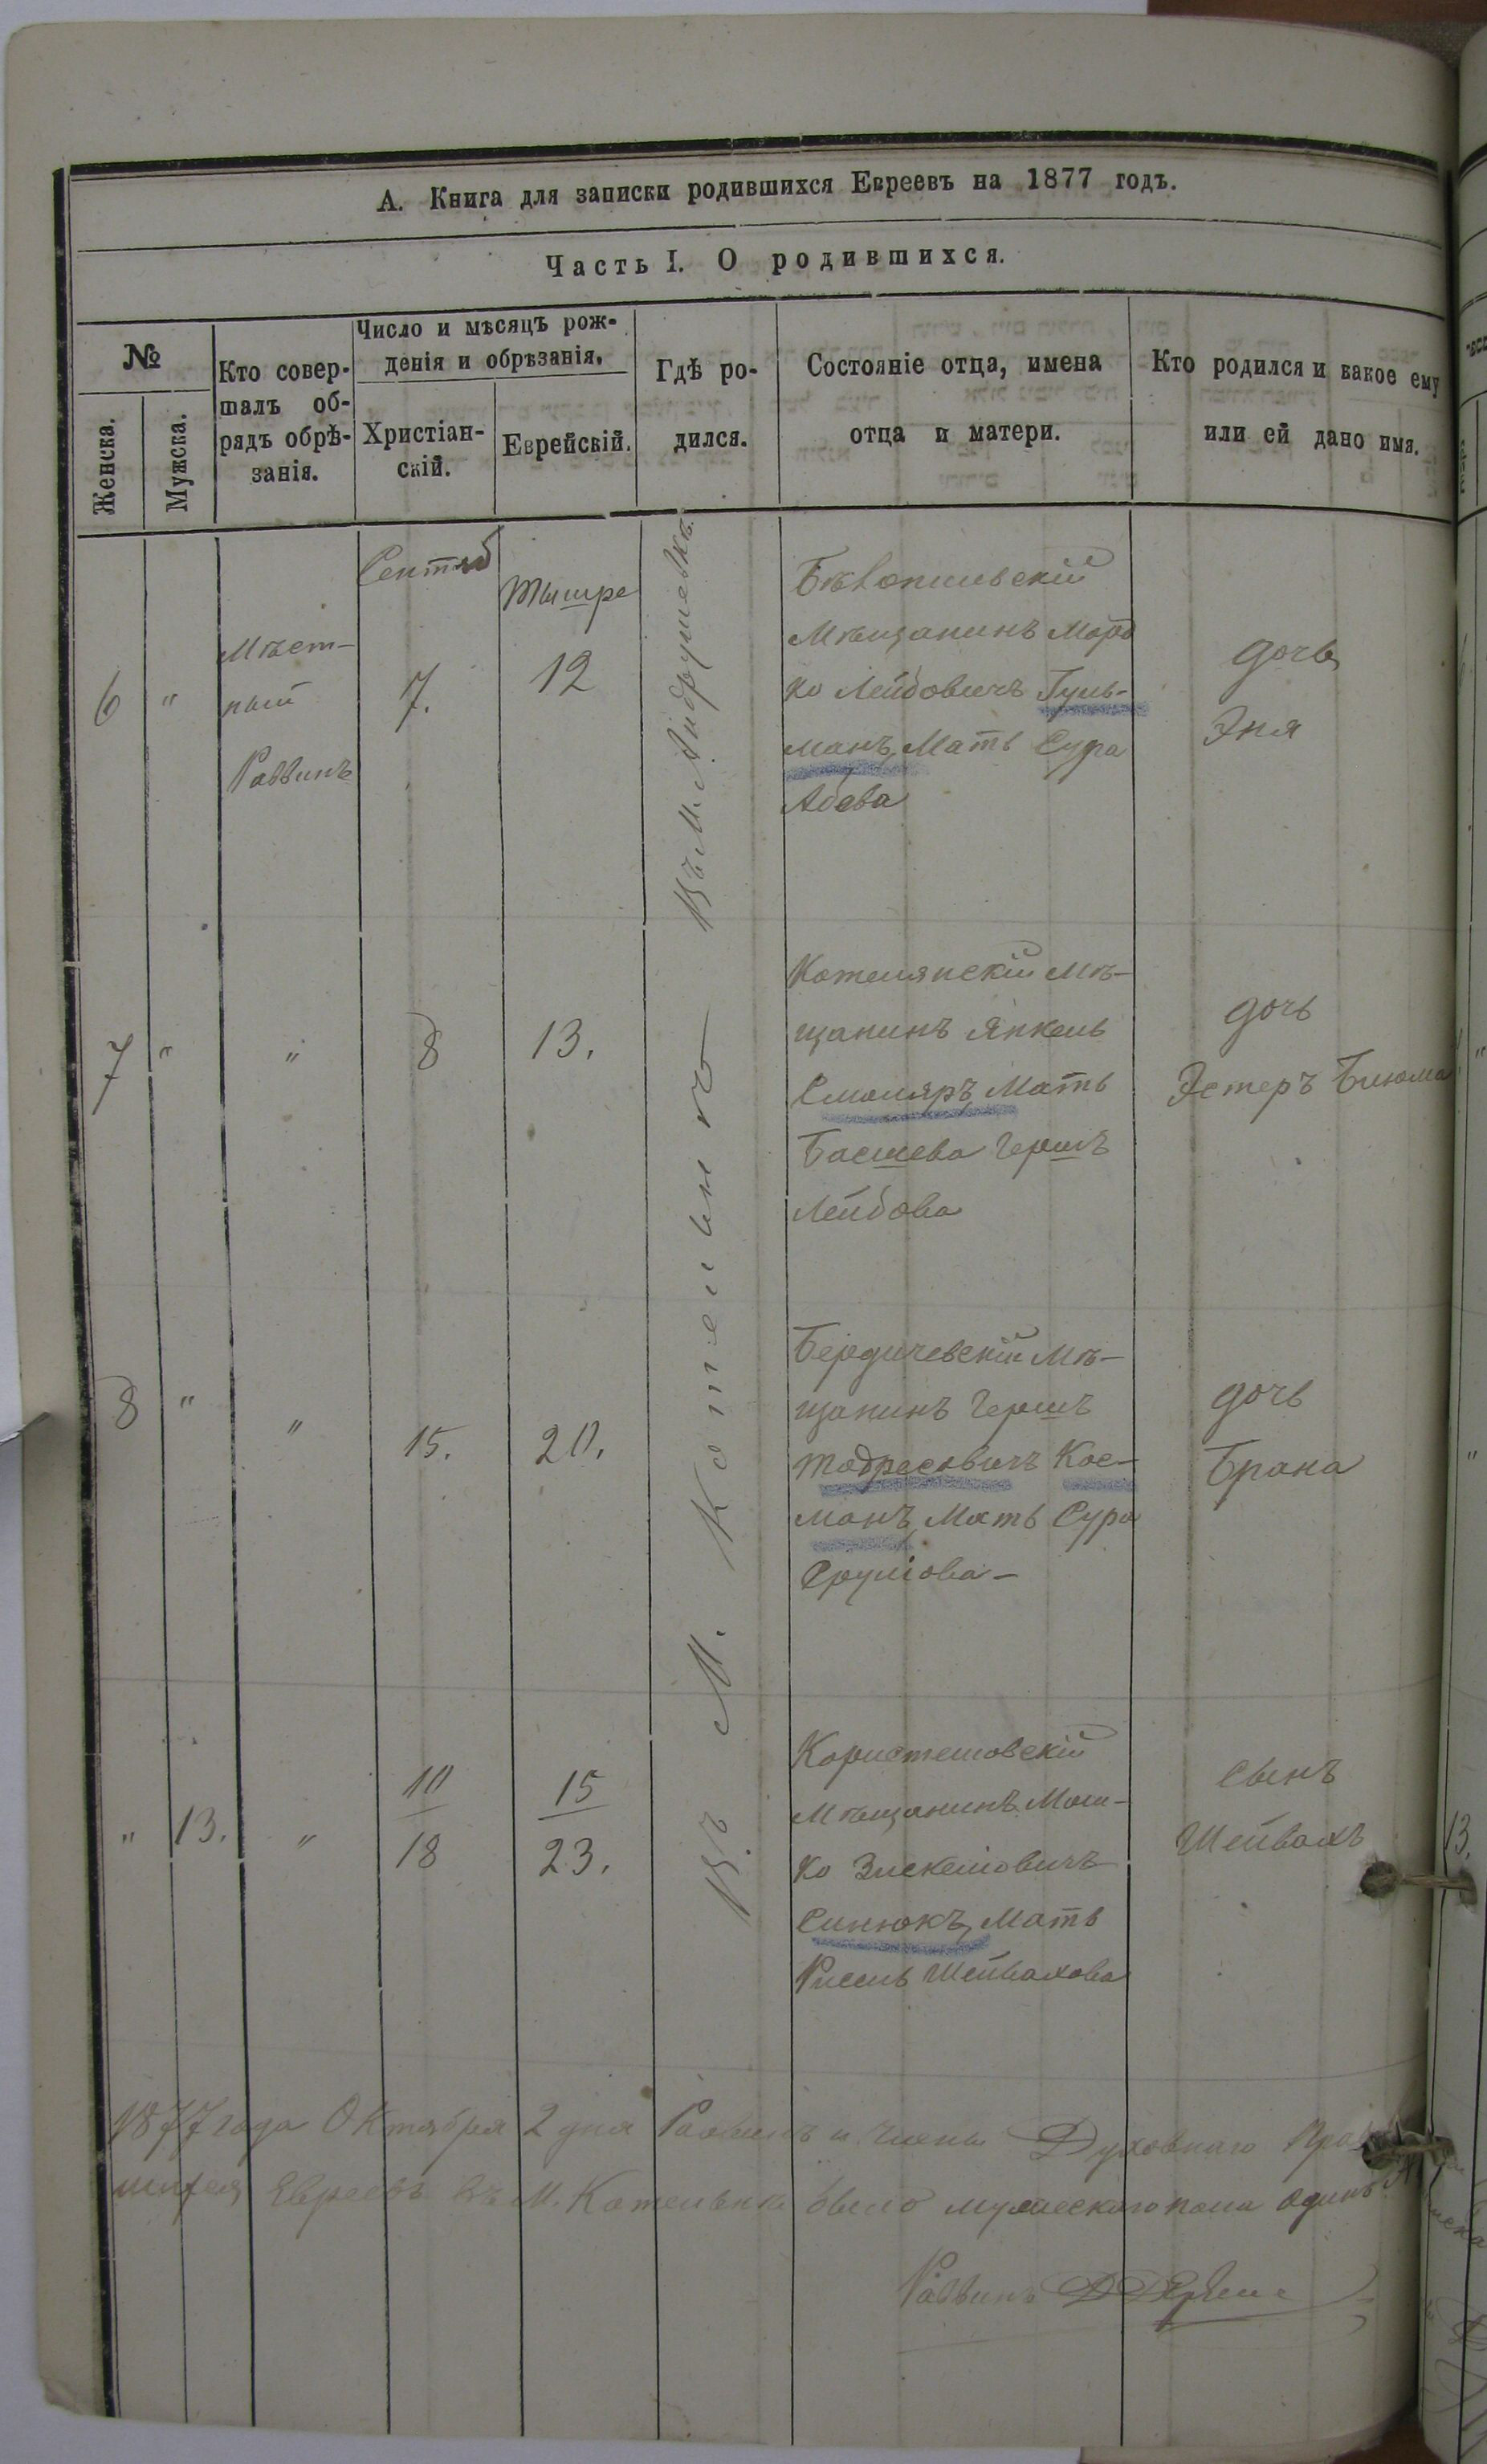 А. Книга для записки родившихся Евреевъ на 1877 годъ.
Часть I. О родившихся.
№
Женска.
Мужска.
Кто совер-
шалъ об-
рядъ обрѣ-
занія.
Число и мѣсяцъ рож-
денія и обрѣзанія.
Христіан-
скій.
Еврейскій.
Гдѣ ро-
дился.
Состояніе отца, имена
отца и матери.
Кто родился и какое ему
или ей дано имя.
6
"
Мѣст-
ный
Раввинъ
Сентяб
7.
Тышре
12
Въ М. Андрушевкѣ
Мѣщанинъ Морд
ко Лейбовичъ Гуль-
манъ, Мать Сура
Абева
дочь
Эня
7
"
"
8
13.
Въ М. Котельнѣ
Котелянскій Мѣ-
щанинъ Янкель
Смоляръ, Мать
Басшева Гершъ
Лейбова
дочь
Эстеръ Блюма
8
"
"
15.
20.
Бердичевскій Мѣ-
щанинъ Гершъ
Тодресовичъ Кос-
манъ, Мать Сура
Срулова-
дочь
Брана
"
13.
"
10
18
15
23.
Мѣщанинъ Мош-
ко
Синюкъ, Мать
Шейвахова
сынъ
Шейвахъ
1877 года Октября 2 дня Раввинъ и члены Духовнаго
Евреевъ въ М. Котельнѣ было мужескаго пола одинъ
Раввинъ